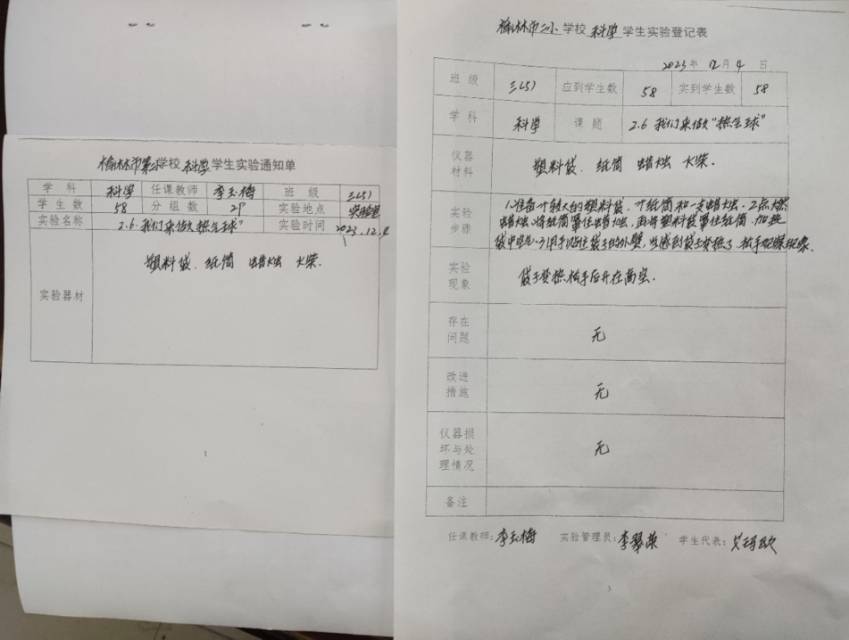 榆林市第二小学校 科学 学生实验通知单
学科 科学 任课教师 李玉梅 班级 三(5)
学生数 58 分组数 29 实验地点 实验室
实验名称 2.6我们来做"热气球" 实验时间 2023.12.4
实验器材 塑料袋、纸筒 蜡烛 火柴.
榆林市二小学校 科学 学生实验登记表
2023年 12月 4日
班级 三(5) 应到学生数 58 实到学生数 58
学科 科学 课题 2.6 我们来做"热气球"
仪器材料 塑料袋、纸筒 蜡烛 火柴.
实验步骤 1.准备一个较大的塑料袋、一个纸筒和一支蜡烛. 2.点燃
蜡烛,将纸筒罩住蜡烛,再将塑料袋罩住纸筒,加热
袋中空气.3.用手贴住袋子的外壁,当感到袋子变热了,松手观察现象.
实验现象 袋子变热松手后升在高空.
存在问题 无
改进措施 无
仪器损坏与处理情况 无
备注
任课教师:李玉梅 实验管理员:李 学生代表: